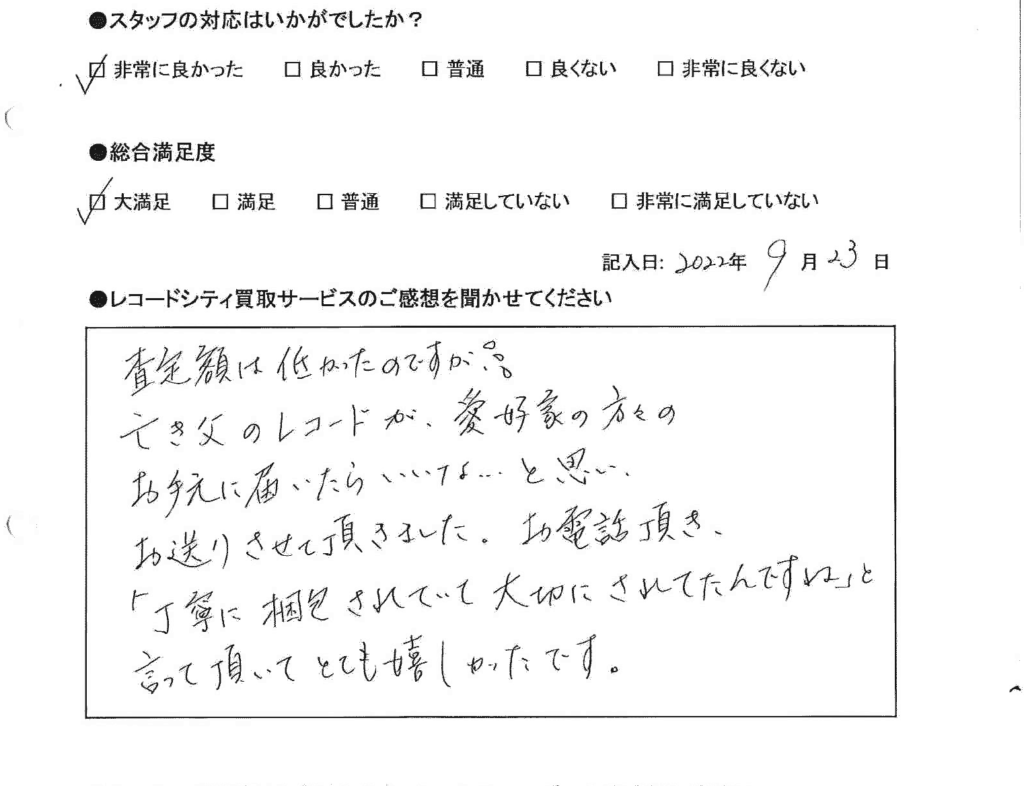 ●スタッフの対応はいかがでしたか？
☑ 非常に良かった　□ 良かった　□ 普通　□ 良くない　□ 非常に良くない
●総合満足度
☑ 大満足　□ 満足　□ 普通　□ 満足していない　□ 非常に満足していない
記入日: 2022年 9 月 23 日
●レコードシティ買取サービスのご感想を聞かせてください
査定額は低かったのですが
亡き父のレコードが、愛好家の方々の
お手元に届いたらいいな…と思い、
お送りさせて頂きました。お電話頂き、
「丁寧に梱包されていて大切にされてたんですね」と
言って頂いてとても嬉しかったです。